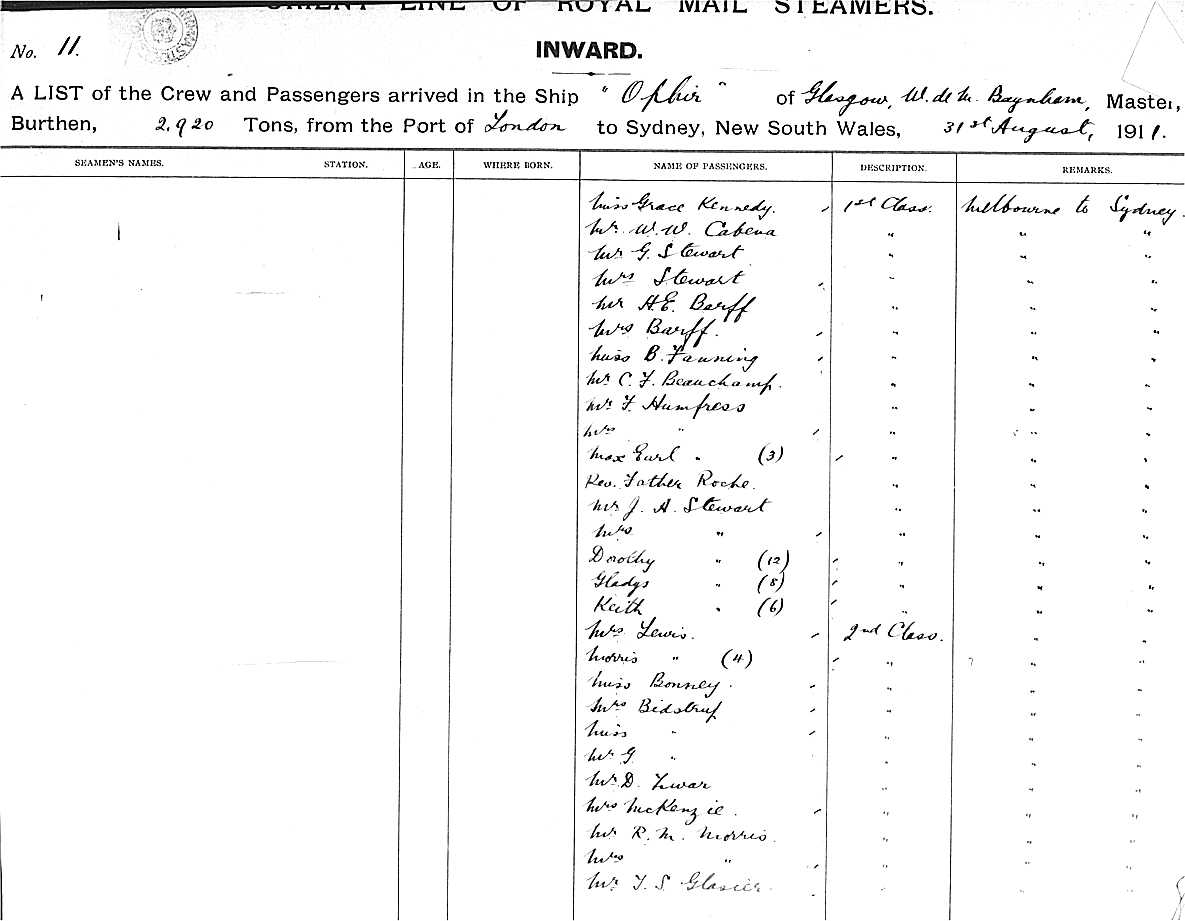 ORIENT LINE OF ROYAL MAIL STEAMERS.
No. 11.
INWARD.
A LIST of the Crew and Passengers arrived in the Ship "Ophir" of Glasgow, W. de M. Baynham, Master,
Burthen, 2,920 Tons, from the Port of London to Sydney, New South Wales, 31st August, 1911.
SEAMEN'S NAMES. STATION. AGE. WHERE BORN. NAME OF PASSENGERS. DESCRIPTION. REMARKS.
Miss Grace Kennedy. 1st Class. Melbourne to Sydney.
Mr. W. W. Cabena " " "
Mr G. Stewart " " "
Mrs Stewart " " "
Mr H. E. Barff " " "
Mrs Barff. " " "
Miss B. Fanning " " "
Mr C. F. Beauchamp. " " "
Mr. F. Humfress " " "
Mrs " " " "
Max Earl " (3) " " "
Rev. Father Roche. " " "
Mr J. A. Stewart " " "
Mrs " " " "
Dorothy " (12) " " "
Gladys " (8) " " "
Keith " (6) " " "
Mrs Lewis. 2nd Class. " "
Morris " (4) " " "
Miss Bonney. " " "
Mrs Bidstrup " " "
Miss " " " "
Mr G " " " "
Mr D. Zwar " " "
Mrs McKenzie. " " "
Mr R. M. Morris. " " "
Mrs " " " "
Mr. T. S. Glasier. " " "